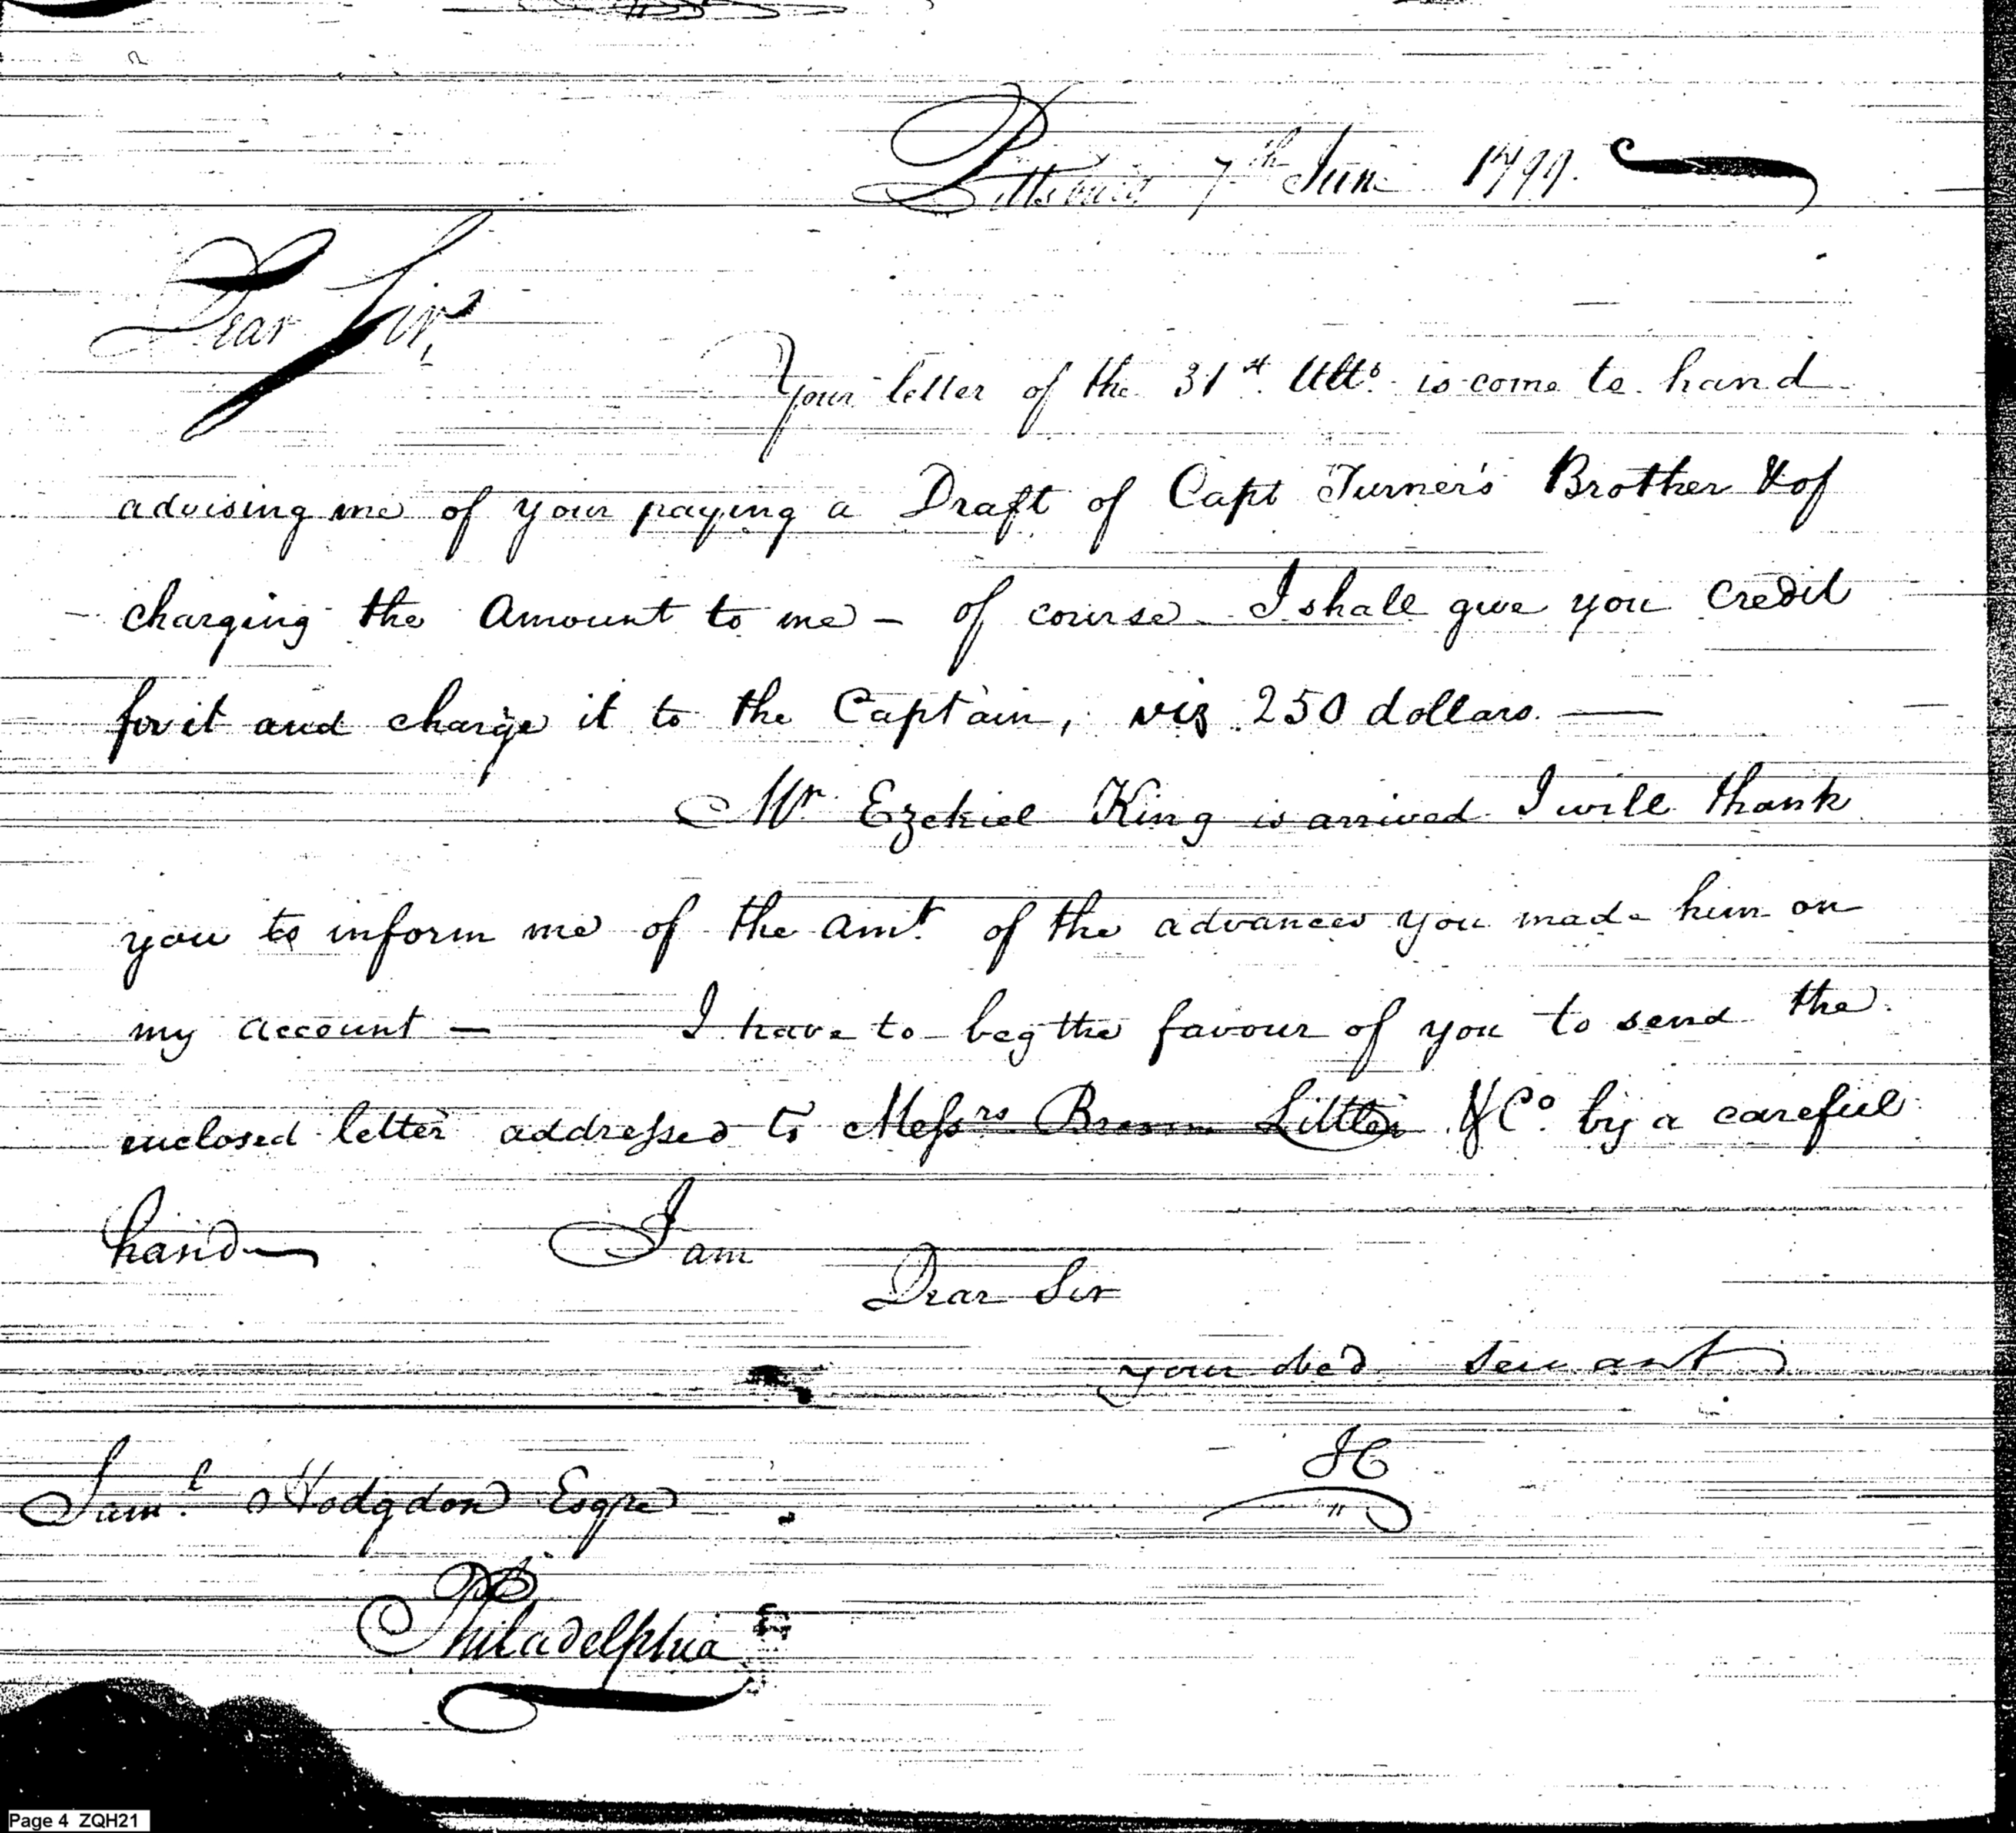 Pittsburgh 7th June 1799.
Dear Sir,
Your letter of the 31st Ulto. is come to hand
advising me of your paying a Draft of Capt Turner's Brother & of
charging the Amount to me — of course I shall give you Credit
for it and charge it to the Captain, viz 250 dollars. —
Mr Ezekiel King is arrived I will thank
you to inform me of the amt. of the advances you made him on
my account — I have to beg the favour of you to send the
enclosed letter addressed to Messrs Brown Little & Co. by a careful
hand — I am
Dear Sir
your obed servant
Saml. Hodgdon Esqre
Philadelphia
Page 4 ZQH21